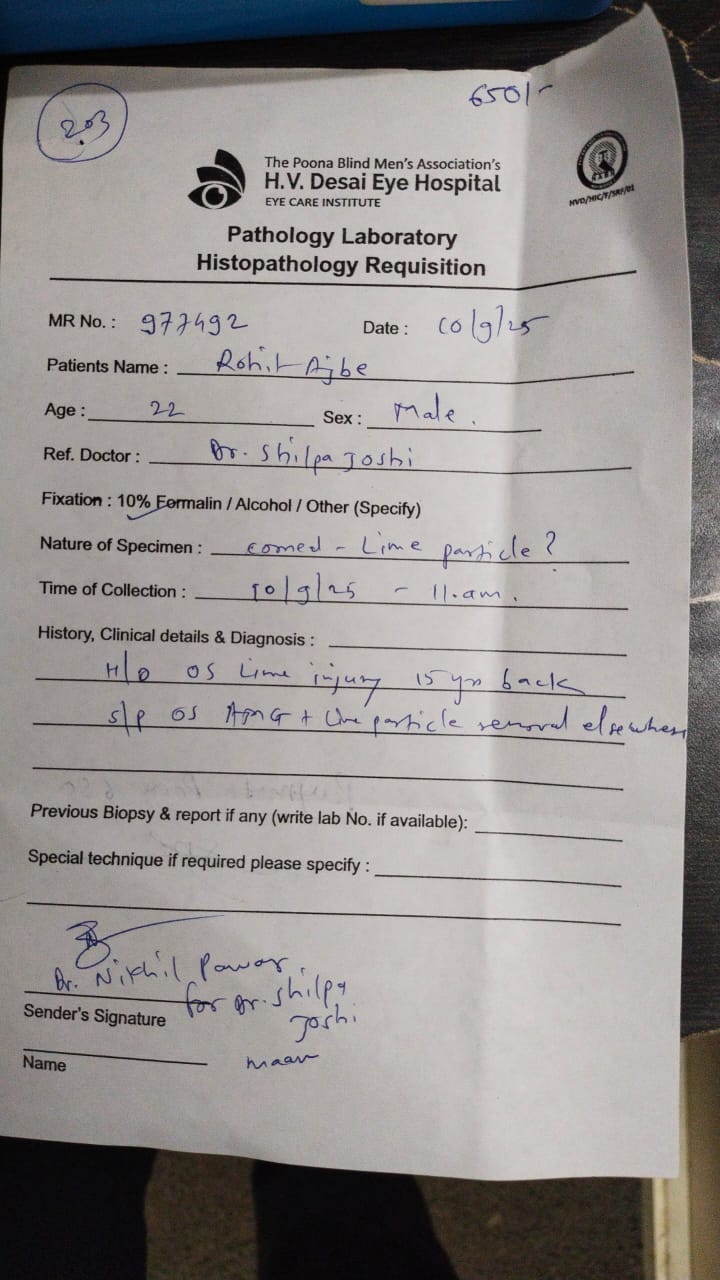 650/-
203
The Poona Blind Men's Association's
H.V. Desai Eye Hospital
EYE CARE INSTITUTE
NVD/HIC/F/SRF/01
Pathology Laboratory
Histopathology Requisition
MR No. : 977492 Date : 10/9/25
Patients Name : Rohit Ajbe
Age : 22 Sex : Male.
Ref. Doctor : Dr. Shilpa Joshi
Fixation : 10% Formalin / Alcohol / Other (Specify)
Nature of Specimen : corneal - Lime particle ?
Time of Collection : 10/9/25 - 11.am.
History, Clinical details & Diagnosis :
H/o OS Lime injury 15 yrs back
s/p OS AMG + Lime particle removal elsewhere
Previous Biopsy & report if any (write lab No. if available):
Special technique if required please specify :
Dr. Nikhil Pawar.
for Dr. Shilpa
Sender's Signature
Joshi
maam
Name